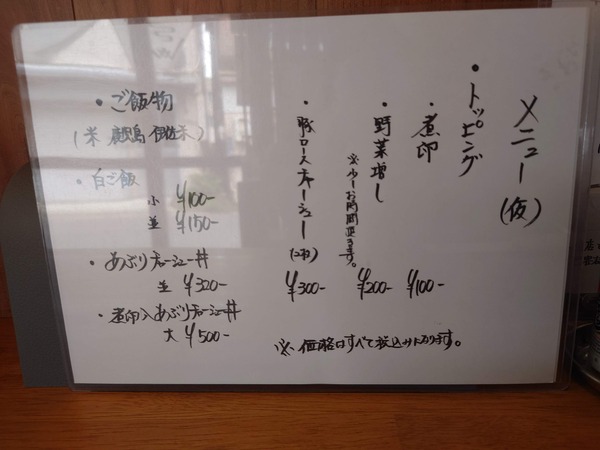 メニュー(仮)
・トッピング
・煮卵 ¥100-
・野菜増し ¥200-
※少しお時間頂きます。
・豚ロースチャーシュー(2枚) ¥300-
※価格はすべて税込みになります。
・ご飯物
(米 鹿児島 伊佐米)
・白ご飯
小 ¥100-
並 ¥150-
・あぶりチャーシュー丼
並 ¥320-
・煮卵入あぶりチャーシュー丼
大 ¥500-